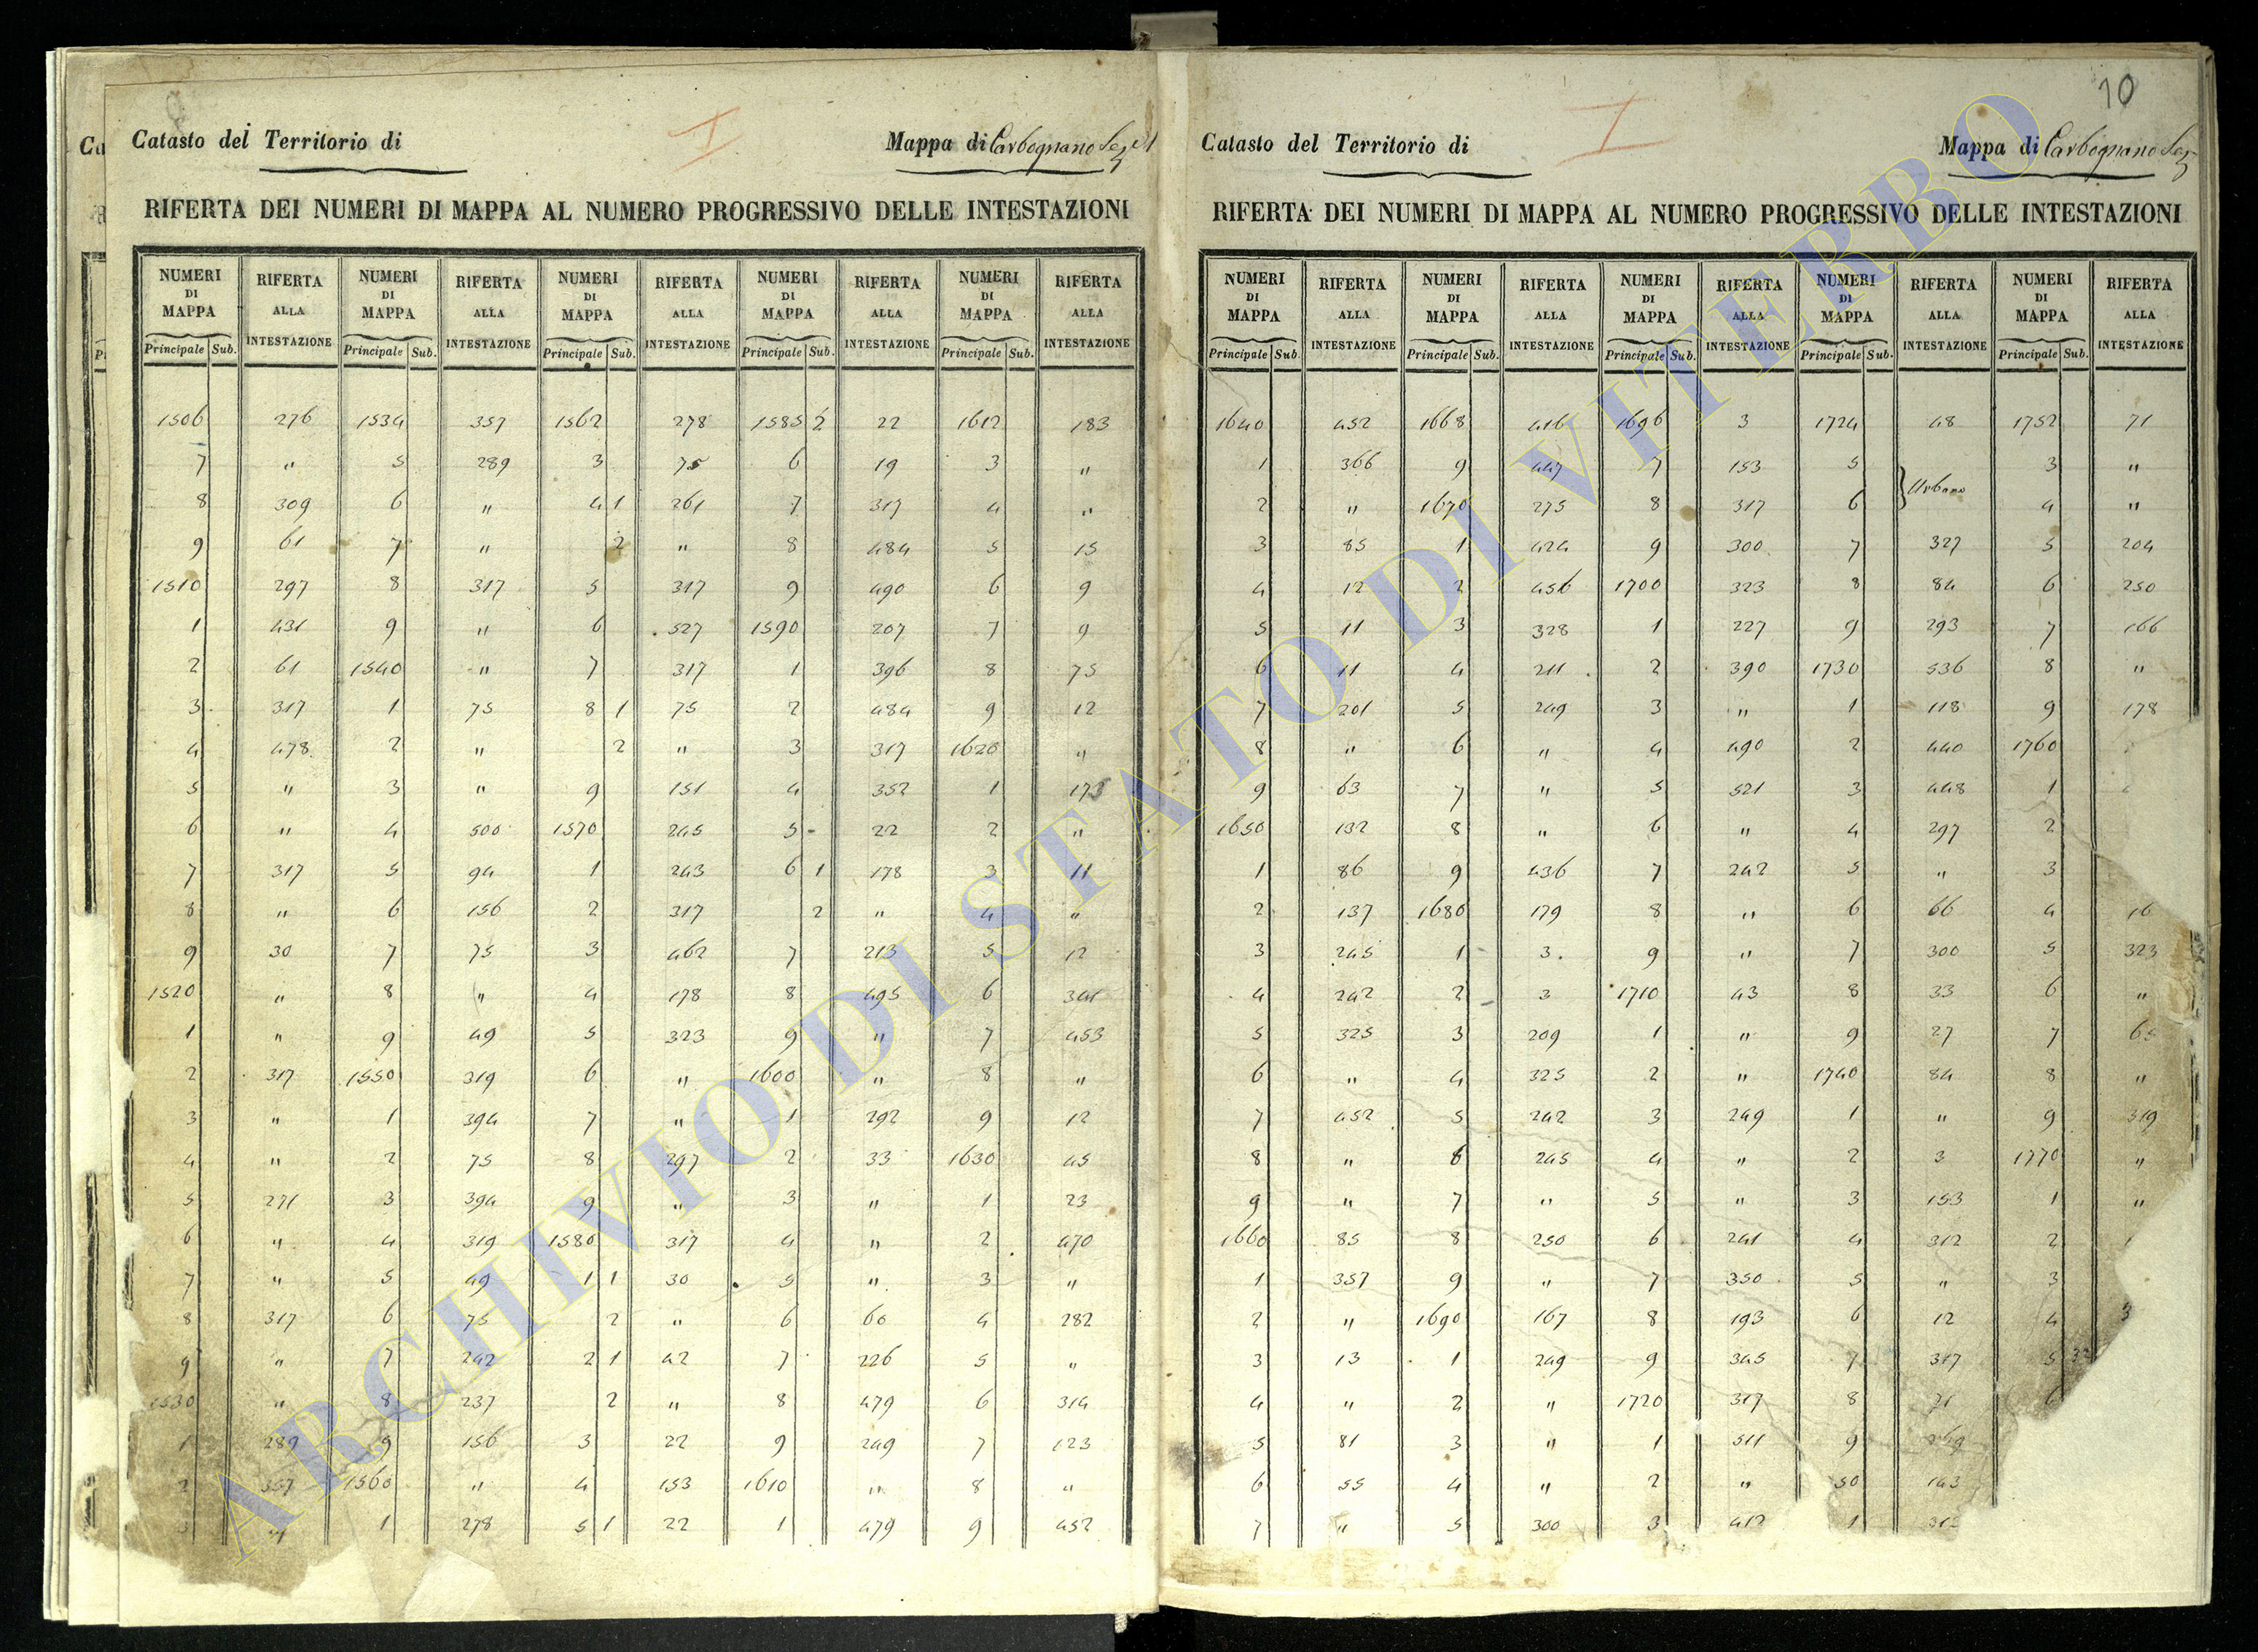 10
Catasto del Territorio di I Mappa di Carbognano Sez
RIFERTA DEI NUMERI DI MAPPA AL NUMERO PROGRESSIVO DELLE INTESTAZIONI
NUMERI DI MAPPA RIFERTA ALLA INTESTAZIONE NUMERI DI MAPPA RIFERTA ALLA INTESTAZIONE NUMERI DI MAPPA RIFERTA ALLA INTESTAZIONE NUMERI DI MAPPA RIFERTA ALLA INTESTAZIONE NUMERI DI MAPPA RIFERTA ALLA INTESTAZIONE
Principale Sub. Principale Sub. Principale Sub. Principale Sub. Principale Sub.
1506 276 1534 357 1562 278 1585 2 22 1612 183
7 " 5 289 3 75 6 19 3 "
8 309 6 " 4 1 261 7 317 4 "
9 61 7 " 2 " 8 484 5 15
1510 297 8 317 5 317 9 490 6 9
1 431 9 " 6 527 1590 207 7 9
2 61 1540 " 7 317 1 396 8 75
3 317 1 75 8 1 75 2 484 9 12
4 478 2 " 2 " 3 317 1620 "
5 " 3 " 9 151 4 352 1 173
6 " 4 500 1570 245 5 22 2 "
7 317 5 94 1 243 6 1 178 3 11
8 " 6 156 2 317 2 " 4 "
9 30 7 75 3 462 7 213 5 12
1520 " 8 " 4 178 8 495 6 341
1 " 9 49 5 323 9 " 7 453
2 317 1550 319 6 " 1600 " 8 "
3 " 1 394 7 " 1 292 9 12
4 " 2 75 8 297 2 33 1630 45
5 271 3 394 9 " 3 " 1 23
6 " 4 319 1580 317 4 " 2 470
7 " 5 49 1 1 30 5 " 3 "
8 317 6 75 2 " 6 60 4 282
9 " 7 242 2 1 42 7 226 5 "
1530 " 8 237 2 " 8 479 6 314
1 289 9 156 3 22 9 249 7 123
2 357 1560 " 4 153 1610 " 8 "
3 " 1 278 5 1 22 1 479 9 452
Catasto del Territorio di I Mappa di Carbognano Sez
RIFERTA DEI NUMERI DI MAPPA AL NUMERO PROGRESSIVO DELLE INTESTAZIONI
NUMERI DI MAPPA RIFERTA ALLA INTESTAZIONE NUMERI DI MAPPA RIFERTA ALLA INTESTAZIONE NUMERI DI MAPPA RIFERTA ALLA INTESTAZIONE NUMERI DI MAPPA RIFERTA ALLA INTESTAZIONE NUMERI DI MAPPA RIFERTA ALLA INTESTAZIONE
Principale Sub. Principale Sub. Principale Sub. Principale Sub. Principale Sub.
1640 452 1668 416 1696 3 1724 48 1752 71
1 366 9 447 7 153 5 Urbano 3 "
2 " 1670 275 8 317 6 4 "
3 85 1 424 9 300 7 327 5 204
4 12 2 456 1700 323 8 84 6 250
5 11 3 328 1 227 9 293 7 166
6 11 4 211 2 390 1730 536 8 "
7 201 5 249 3 " 1 118 9 178
8 " 6 " 4 490 2 440 1760
9 63 7 " 5 521 3 448 1
1650 132 8 " 6 " 4 297 2
1 86 9 436 7 242 5 " 3
2 137 1680 179 8 " 6 66 4 16
3 245 1 3 9 " 7 300 5 323
4 242 2 3 1710 43 8 33 6 "
5 325 3 209 1 " 9 27 7 65
6 " 4 325 2 " 1740 84 8 "
7 452 5 242 3 249 1 " 9 319
8 " 6 245 4 " 2 3 1770 "
9 " 7 " 5 " 3 153 1 "
1660 85 8 250 6 241 4 312 2
1 357 9 " 7 350 5 " 3
2 " 1690 167 8 193 6 12 4 3
3 13 1 249 9 345 7 317 5
4 " 2 " 1720 317 8 71 6
5 81 3 " 1 511 9
6 55 4 " 2 " 50 143
7 " 5 300 3 412 1
ARCHIVIO DI STATO DI VITERBO